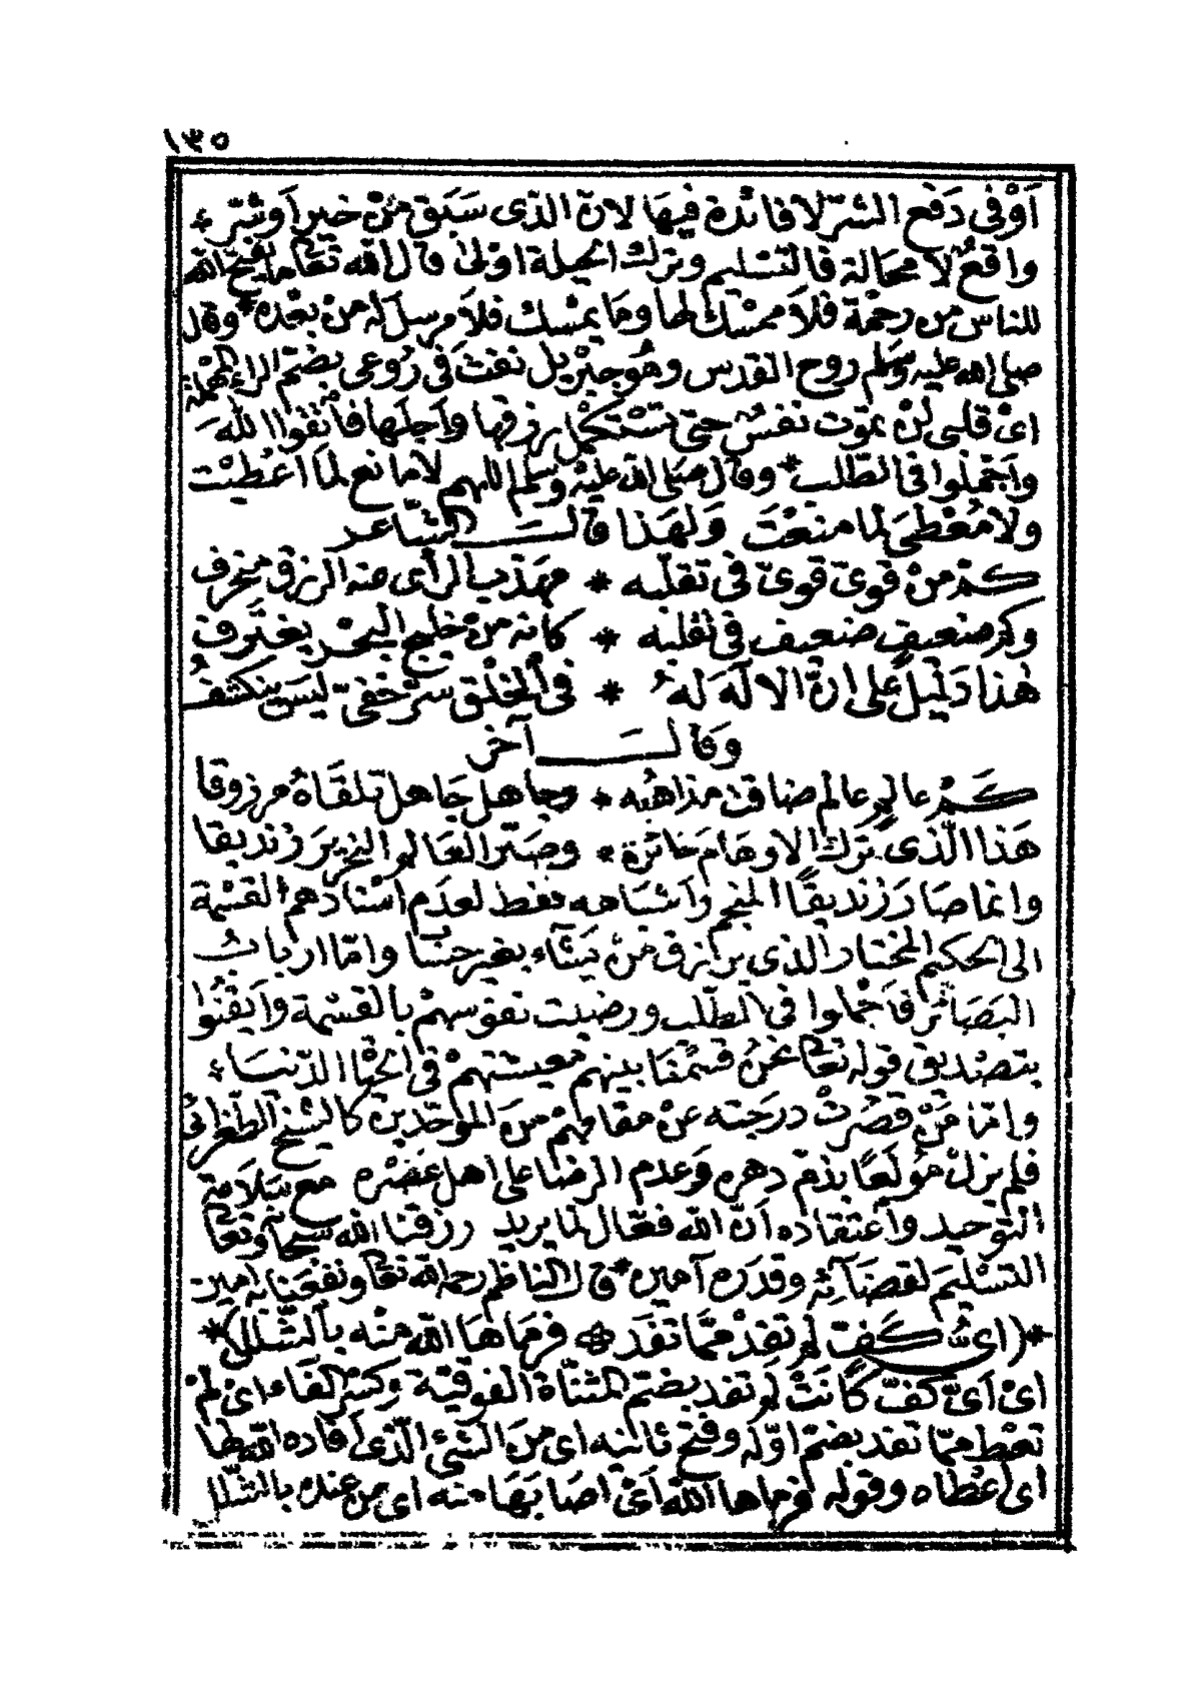 ١٣٥
اَوْ فى دَفع الشرّ لا فائدة فيهَا لانّ الذى سَبَق منْ خير اَوشرّ
واقعٌ لا محالة فالتسْليم وترك الحيلة اوْلى قال الله تعَا ما يفتح الله
للناس من رحْمة فلاَ ممْسك لها وما يمْسك فلاَ مرسل له منْ بعْده * وقال
صلى الله عليه وسلم روح القدس وهُو جبْريل نفث فى رُوعى بضمّ الراء المهملة
اىْ قلبى لنْ تموت نفسٌ حتى تسْتكمل رزقها وَاَجلَها فاتّقوا الله
واَجْملوا فى الطّلب * وقال صَلى الله عليْه وَسلم اللهم لا مانع لمَا اعْطيْت
ولا مُعْطىَ لما منعْتَ وَلهَذا قالَ الشّاعر
كمْ منْ قوىّ قوىّ فى تقلّبه * مهذّب الرأى عنه الرزق منحرف
وكم ضعيفٍ ضعيف فى تقلبه * كانه منْ خليج البحْر يغترف
هٰذا دَليلٌ على انّ الالَه لهُ * فى الخلْق سرّ خفىّ ليسَ ينكشفُ
وَقالَ آخر
كَمْ عالمٍ عالم ضاقت مذاهبُه * وجاهل جَاهل تلقاهُ مرزوقا
هَذا الّذى تَرك الاوهامَ حَائرة * وصَيّر العَالم النحْريرَ زنديقا
وانما صَارَ زنديقًا المنجم وَاَشبَاهه فقط لعدَم اسْنادهم القسْمة
الى الحكيم المختار الذى يرزق منْ يَشَآء بغير حسَاب وامّا اربابُ
البَصَائر فاَجْملوا فى الطّلب ورضيت نفوسهمْ بالقسْمة وَاَيْقنُوا
بتصْديق قوله تعَا نحْنُ قسمْنَا بينهم معيشتهمْ فى الحيْاة الدّنيَا
وامّا مَنْ قصُرتْ درَجته عنْ مقامهمْ منَ الموَحّدين كالشيْخ الطّغرائى
فلم يزلْ مُولَعًا بذمّ دهره وَعدم الرضا على اهل عَصْره مع سَلاَمة
التّوحيد واَعتقاده اَنّ الله فعّال لما يريد رزقنا الله سبحانه وتعَا
التسْليمَ لقضآئه وقدَره آمين * قال الناظم رحمه الله تعَا ونفعَنا به آمين
*(اىُّ كَفٍّ لم تفدْ ممَّا تفَد ۞ فرمَاهَا اللّه منْه بالشّلل)*
اىْ اَىّ كفّ كَانَتْ لم تفد بضمّ المثنّاة الفوقيّة وَكسْر الفَاء اىْ لمْ
تعْط ممّا تفد بضمّ اوّله وفتح ثالثه اى منَ الشئ الّذى اَفاده الله لها
اى اعْطاه وقوله فرماها الله اَىْ اصَابَهَا منه اى من عنده بالشّلل